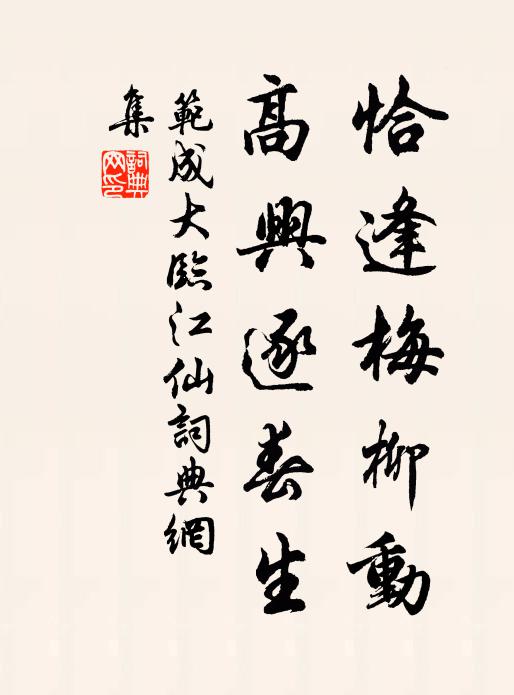 恰逢梅柳動
高興逐春生
範成大臨江仙詞典網
集
詞典
网印